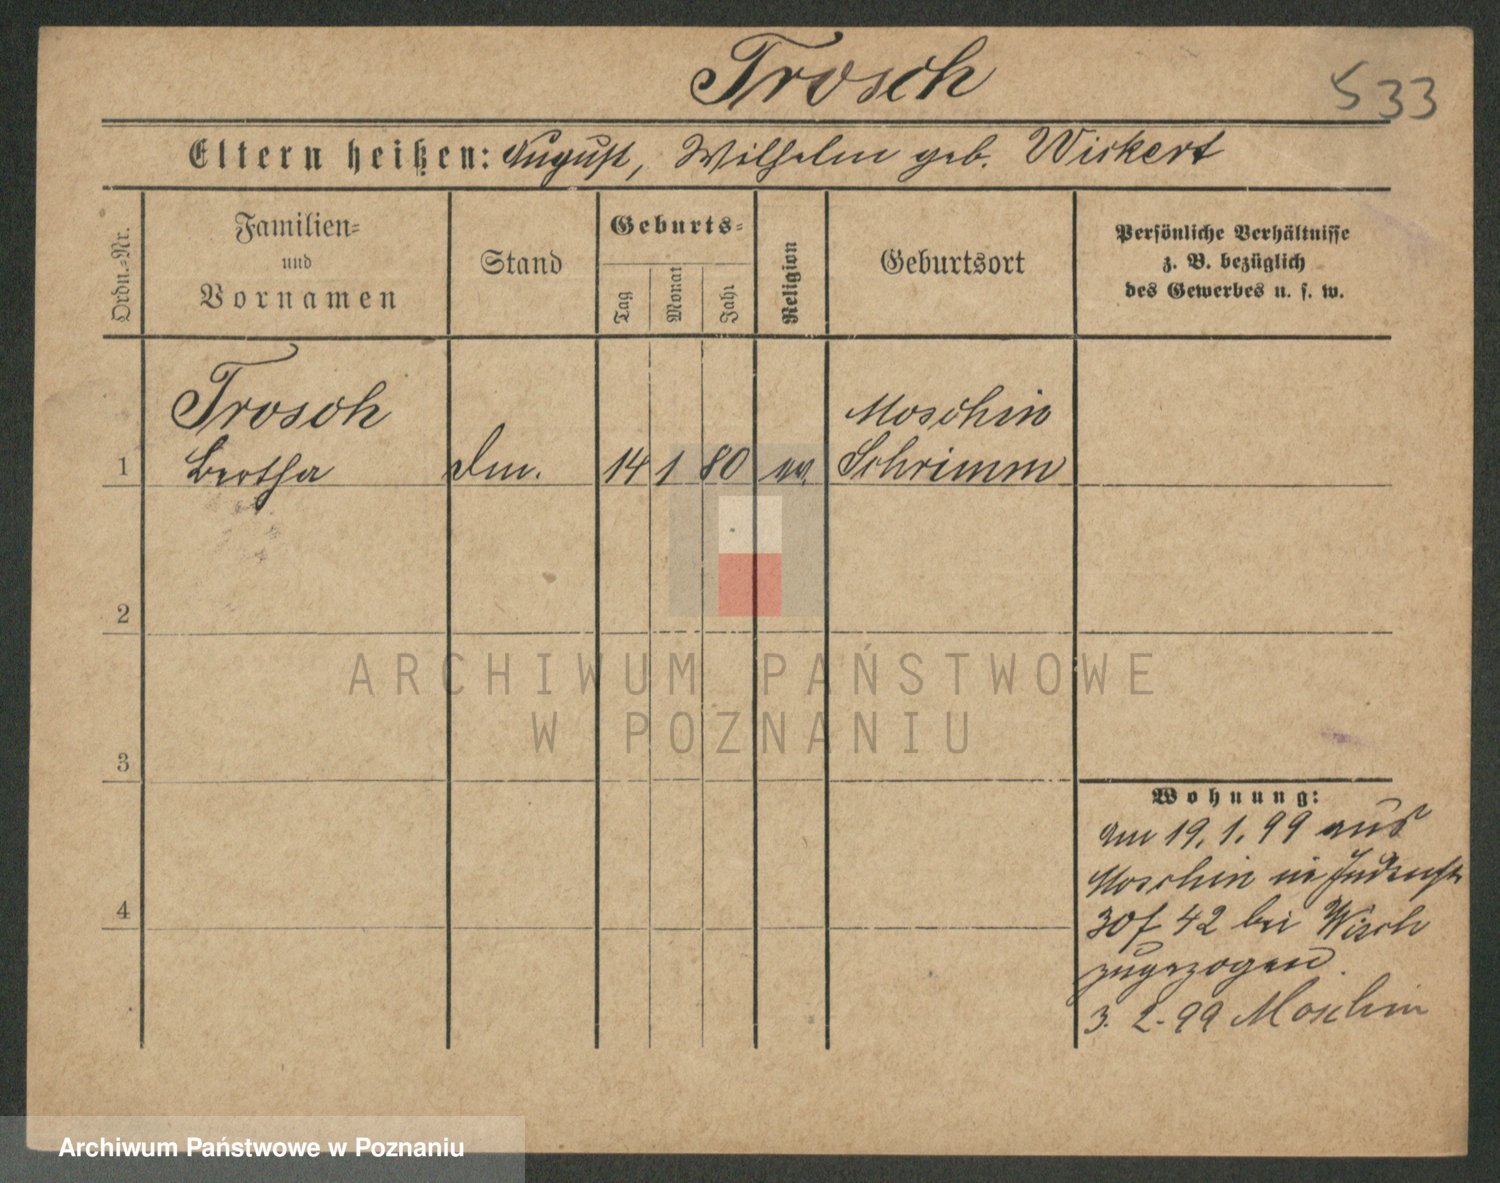 Trosch
533
Eltern heißen: August, Wilhelm geb. Wickert
Ordn.=Nr.
Familien=
und
Vornamen
Stand
Geburts=
Tag
Monat
Jahr
Religion
Geburtsort
Persönliche Verhältnisse
z. B. bezüglich
des Gewerbes u. s. w.
Trosch
Moschin
1 Bertha 14 1 80 ev. Schrimm
2
3
4
ARCHIWUM PAŃSTWOWE
W POZNANIU
Wohnung:
am 19.1.99 aus
Moschin in
42 bei Wisch
zugezogen.
3. 2. 99 Moschin
Archiwum Państwowe w Poznaniu